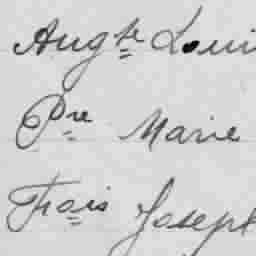 Augte Loui
Pre Marie
Frois Joseph